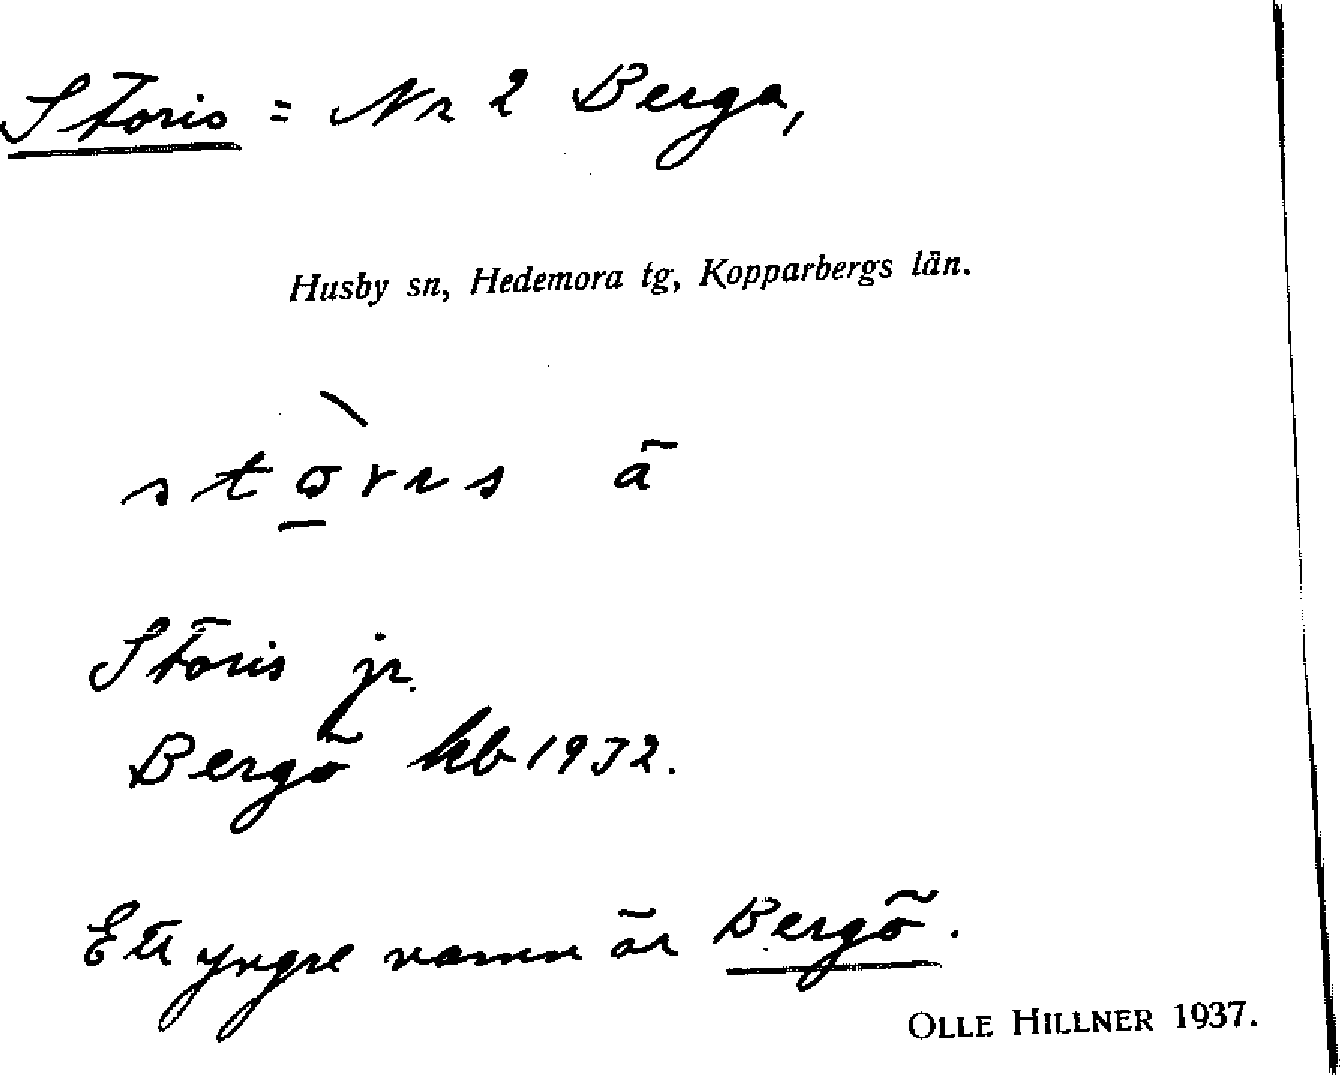 Storis = Nr 2 Berga,
Husby sn, Hedemora tg, Kopparbergs län.
ä
Storis jr.
Bergö kb 1932.
Ett yngre namn är Bergö.
OLLE HILLNER 1937.